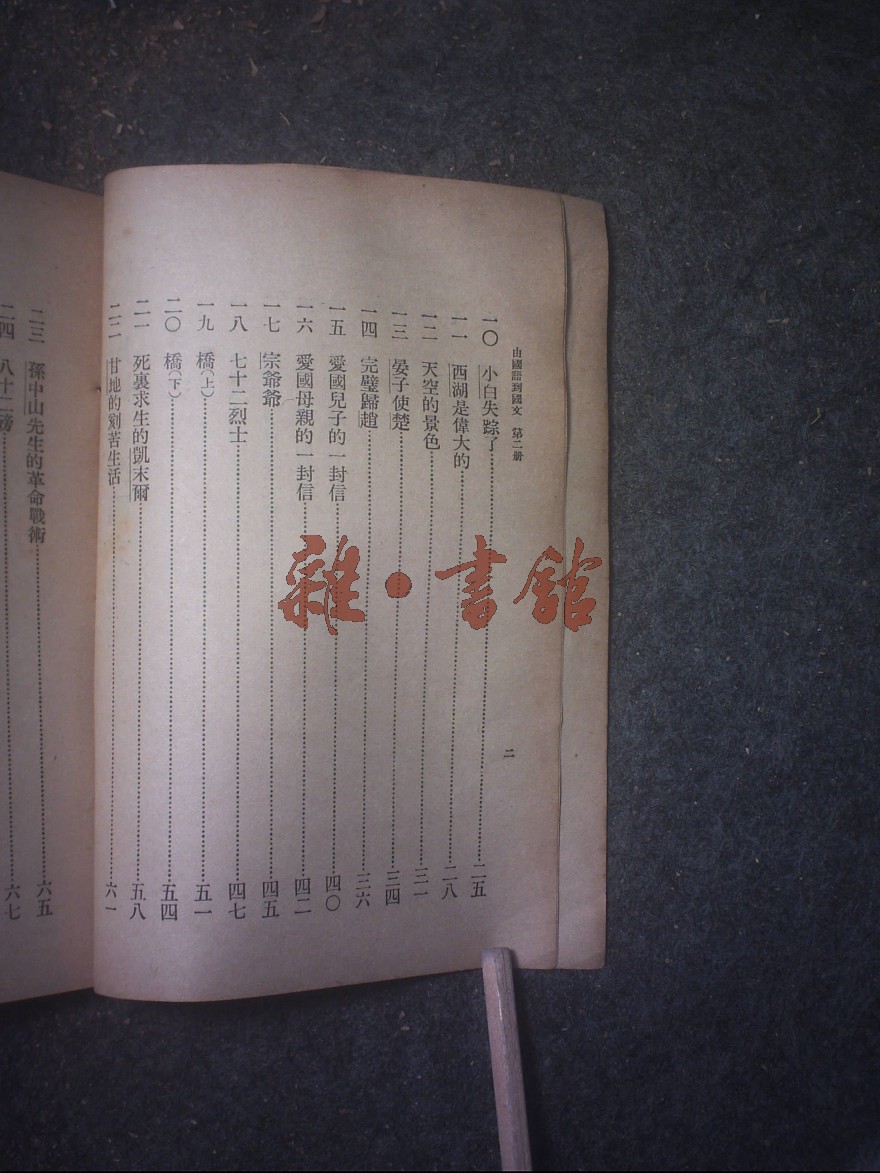 由國語到國文 第二册
一〇 小白失踪了 二五
一一 西湖是偉大的 二八
一二 天空的景色 三一
一三 晏子使楚 三四
一四 完璧歸趙 三六
一五 愛國兒子的一封信 四〇
一六 愛國母親的一封信 四二
一七 宗爺爺 四五
一八 七十二烈士 四七
一九 橋(上) 五一
二〇 橋(下) 五四
二一 死裏求生的凱末爾 五八
二二 甘地的刻苦生活 六一
二
二三 孫中山先生的革命戰術 六五
二四 八十二磅 六七
雜·書館